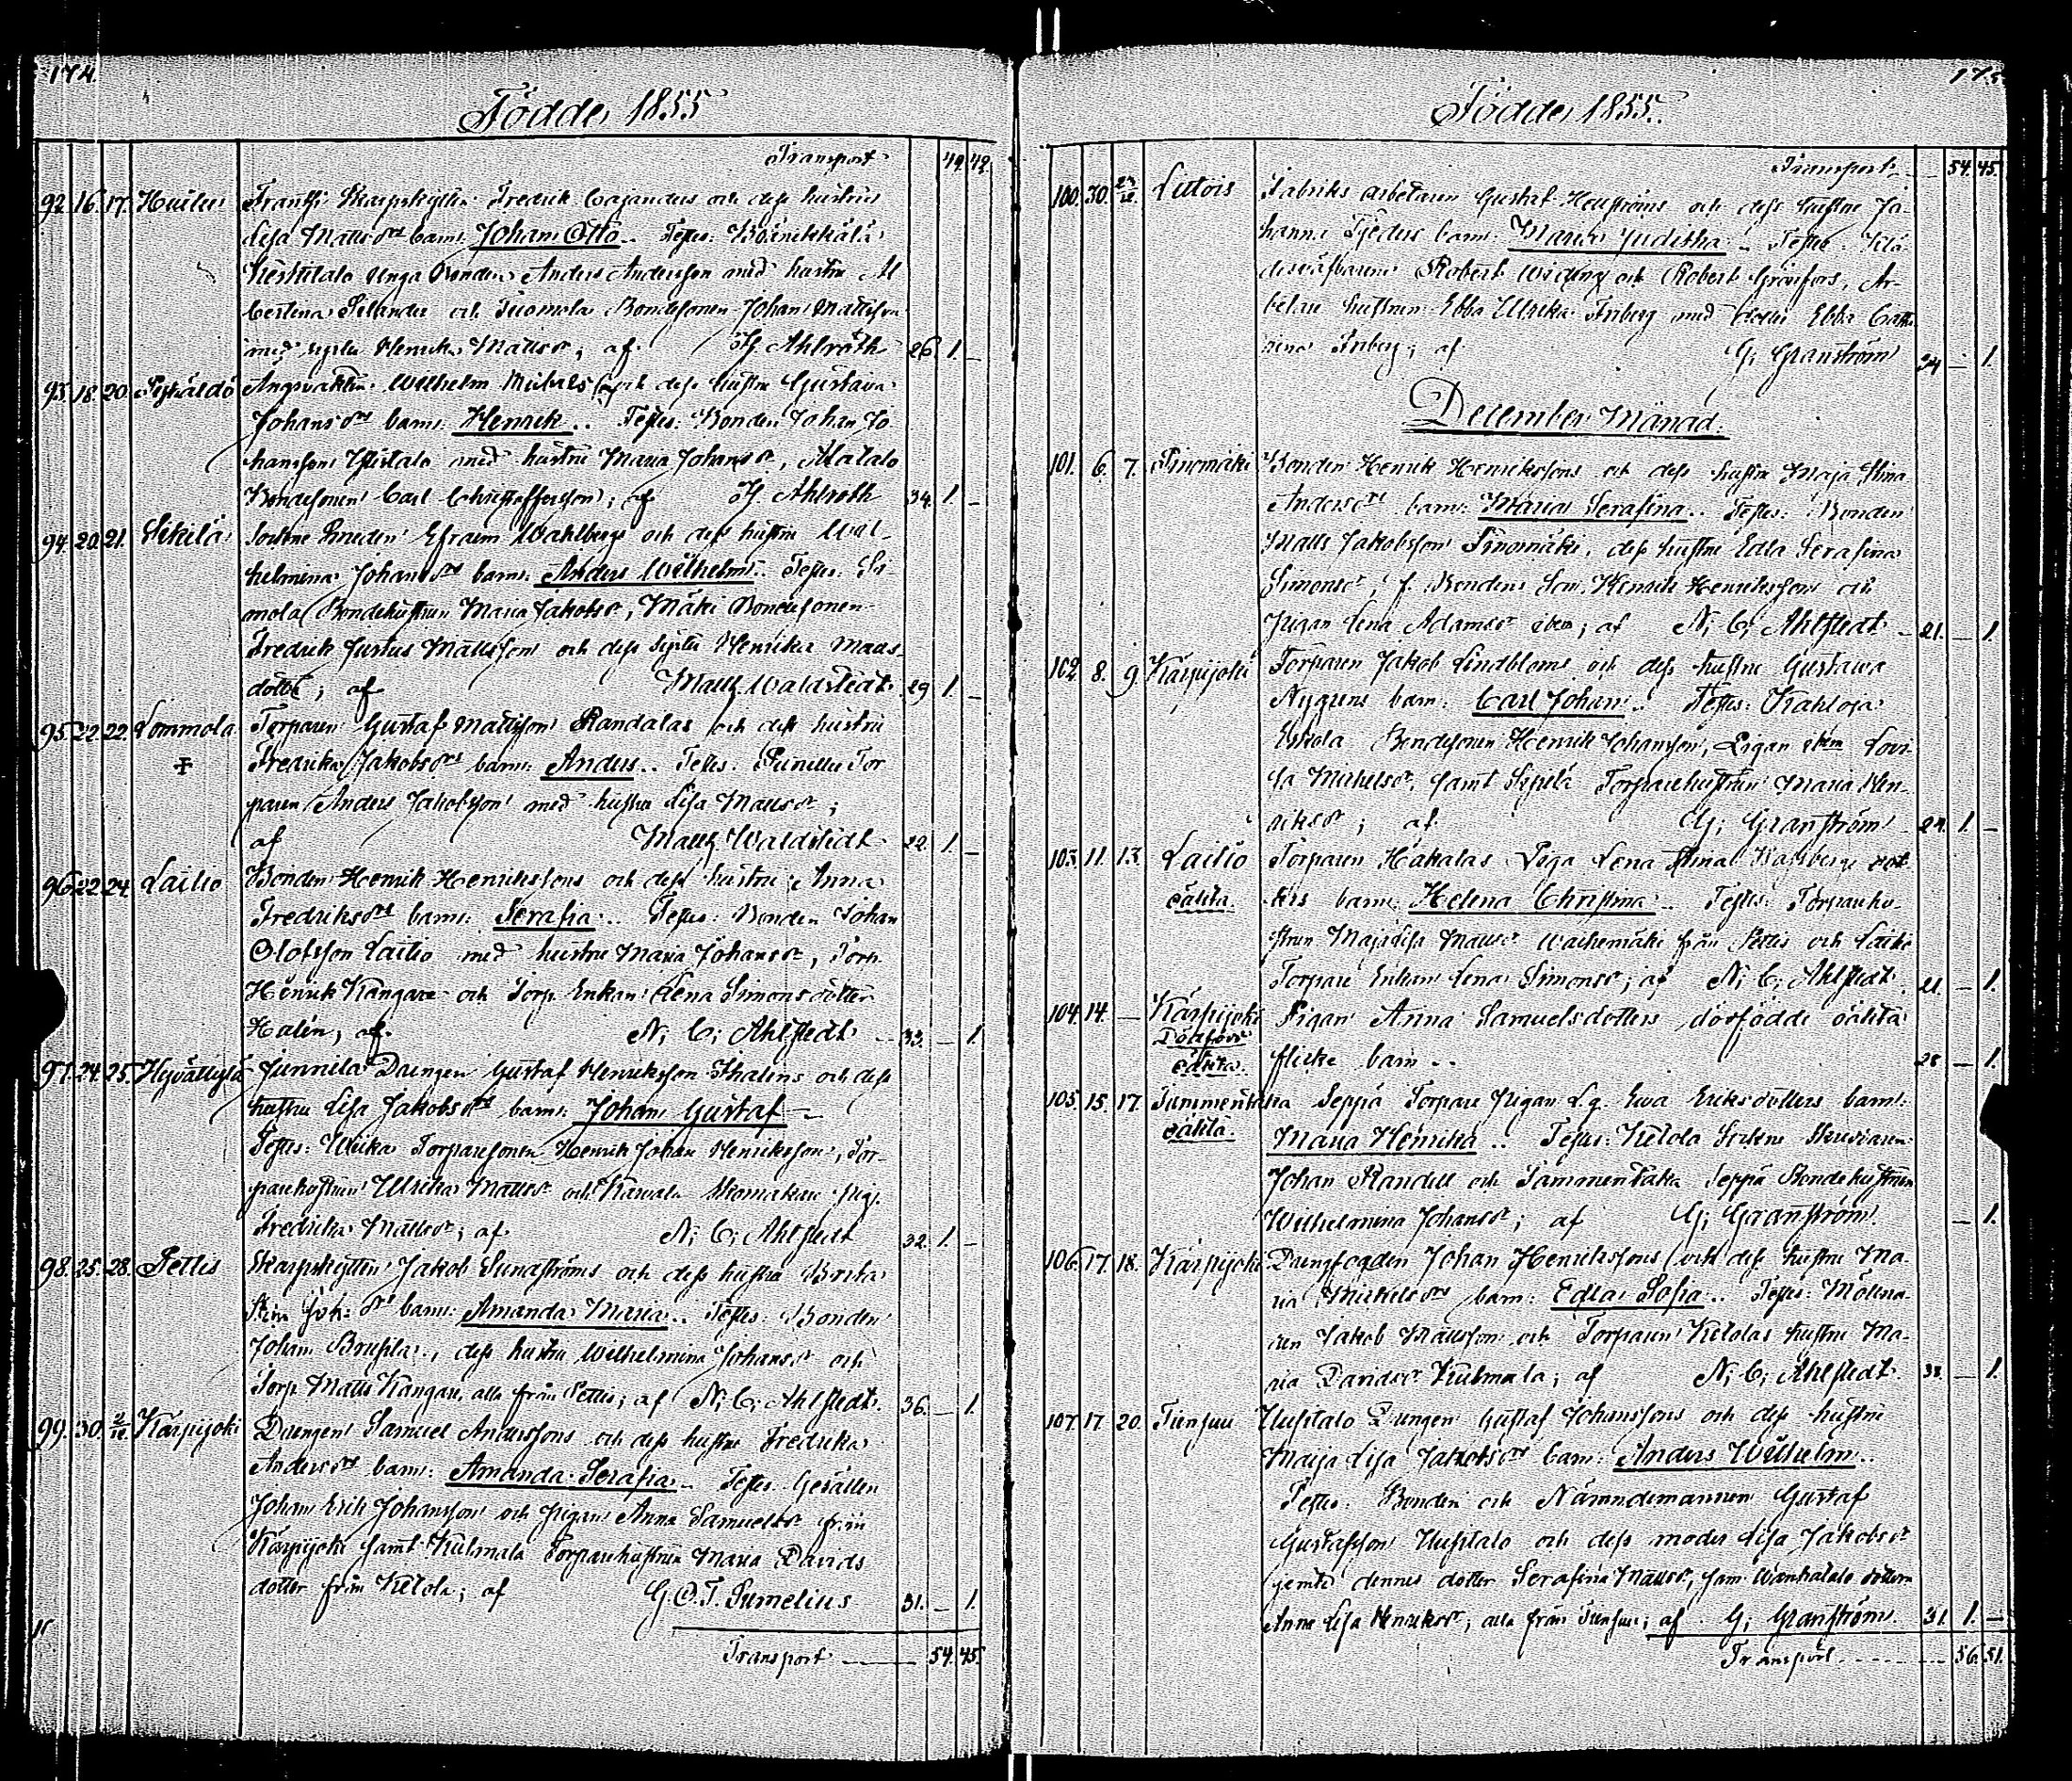 174.
Födde 1855
Transport 49. 42.
92. 16. 17. Huilu Frantsi Skarpskytten Fredrik Cajanders och dess hustrus
Lisa Mattsdrs barn: Johan Otto.. Testes:
Kestitalo Unga Bonden Anders Andersson med hustru Al
bertina Selander och Tuomola Bondesonen Johan Mattsson
med syster Henrika Mattsdr; af H. Ahlroth 26. 1. –
93. 18. 20. Wilhelm Michelss. och dess hustru Gustava
Johansdrs barn: Henrik.. Testes: Bonden Johan Jo
hansson Ylistalo med hustru Maria Johansdr, Alatalo
Bondesonen Carl Christoffersson; af H. Ahlroth 34. 1. –
94. 20. 21. Sikilä Sockne Smeden Efraim Wahlbergs och dess hustru Wil-
helmina Johansdrs barn: Anders Wilhelm.. Testes: Si
mola Bondehustrun Maria Jakobsdr, Mäki Bondesonen
Fredrik Justus Mattsson och dess syster Henrika Matts-
dotter; af Matth Waldstedt 29. 1. –
95. 22. 22. Lommola Torparen Gustaf Mattsson Randalas och dess hustru
Fredrika Jakobsdrs barn: Anders.. Testes: Tor
paren Anders Jakobsson med hustru Lisa Mattsdr;
af Matth Waldstedt 22. 1. –
96. 22. 24. Lailio Bonden Henrik Henrikssons och dess hustru Anna
Fredriksdrs barn: Serafia.. Testes: Bonden Johan
Olofsson Lailio med hustru Maria Johansdr, Torp.
Henrik Kangare och Torp. Enkan Lena Simonsdotter
Halen; af N; C; Ahlstedt 33. – 1.
97. 24. 25. Hyvälkylä Junnila Drengen Gustaf Henriksson Thalens och dess
hustru Lisa Jakobsdrs barn: Johan Gustaf –
Testes: Torparesonen Henrik Johan Henriksson, Tor-
parehustrun Ulrika Mattsdr och Pig.
Fredrika Mattsdr; af N; C; Ahlstedt 32. 1. –
98. 25. 28. Pettis Skarpskytten Jakob Sundströms och dess hustru Brita
Stina Joh: drs barn: Amanda Maria.. Testes: Bonden
Johan Brusila, dess hustru Wilhelmina Johansdr och
Torp. Matts Kangare, alla från Pettis; af N; C; Ahlstedt. 36. – 1.
99. 30. 2/12 Karpijoki Drengen Samuel Anderssons och dess hustru Fredrika
Andersdrs barn: Amanda Serafia.. Testes: Gesällen
Johan Erik Johansson och Pigan Anna Samuelsdr från
Karpijoki samt Kulmala Torparehustrun Maria Davids
dotter från Ketola; af G. O. T. Sumelius 31. – 1.
Transport 54. 45.
175
Födde 1855.
Transport 54. 45.
100. 30. Lutois Fabriks arbetaren Gustaf Henströms och dess hustru Jo-
hanna Tjeders barn: Maria Juditha.. Testes:
Robert Widing och Robert Grönfors, Ar-
betare hustrun Ebba Ulrika Friberg med dotter Ebba Catha
rina Friberg; af G; Granström 34 – 1.
December Månad.
101. 6. 7. Sinomäki Bonden Henrik Henrikssons och dess hustru Maja Stina
Andersdrs barn: Maria Serafina.. Testes: Bonden
Matts Jakobsson Sinomäki, dess hustru Edla Serafina
Simonsdr, f. Bondens Son Henrik Henriksson och
Pigan Lena Adamsdr ibm; af N; C; Ahlstedt 21. – 1.
102. 8. 9. Karpijoki Torparen Jakob Lindbloms och dess hustru Gustava
Nygrens barn: Carl Johan.. Testes: Kahloja
Eskola Bondesonen Henrik Johansson, Pigan ibm Lovi
sa Michelsdr, samt Seppälä Torparehustrun Maria Hen-
riksdr; af G; Granström 24. 1. –
103. 11. 13. Lailio oäkta. Torparen Hakalas Piga Lena Stina Wahlbergs dot-
ters barn: Helena Christina.. Testes: Torparehu-
strun Majalisa Mattsdr Waihemäki från Pettis och Lailio
Torpare Enkan Lena Simonsdr; af N; C; Ahlstedt 21. – 1.
104. 14. – Karpijoki Dödfödt oäkta. Pigan Anna Samuelsdotters dödfödde oäkta
flicke barn.. 28 – 1.
105. 15. 17. Tammentaka oäkta. Seppä Torpare Pigan Lg. Ewa Eriksdotters barn:
Maria Henrika.. Testes: Ketola Sockne Skräddaren
Johan Randell och Tammentaka Seppä Bondehustrun
Wilhelmina Johansdr; af G; Granström. – 1.
106. 17. 18. Karpijoki Drengfogden Johan Henrikssons och dess hustru Ma-
ria Michelsdrs barn: Edla Sofia.. Testes: Mölna-
ren Jakob Mattsson och Torparen Ketolas hustru Ma-
ria Davidsdr Kulmala; af N; C; Ahlstedt. 33. – 1.
107. 17. 20. Tiensuu Uusitalo Drengen Gustaf Johanssons och dess hustru
Maja Lisa Jakobsdrs barn: Anders Wilhelm..
Testes: Bonden och Nämndemannen Gustaf
Gustafsson Uusitalo och dess moder Lisa Jakobsdr
jemte dennes dotter Serafina Mattsdr, sam Wanhatalo dottern
Anna Lisa Henriksdr; alla från Tiensuu; af G; Granström. 31. 1. –
Transport 56. 51.